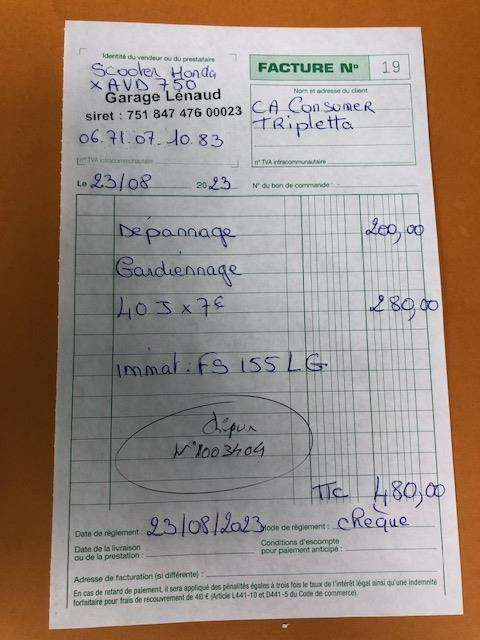 Identité du vendeur ou du prestataire
Scooter Honda
X ADV 750
Garage Lenaud
siret : 751 847 476 00023
06.71.07.10.83
n° TVA intracommunautaire
FACTURE N° 19
Nom et adresse du client
CA Consumer
Tripletta
n° TVA intracommunautaire
Le 23/08 2023 N° du bon de commande : -
Dépannage 200,00
Gardiennage
40 J x 7€ 280,00
immat : FS 155 LG
Chèque
N°1003404
TTC 480,00
Date de règlement : 23/08/2023 Mode de règlement : chèque
Date de la livraison
ou de la prestation :
Conditions d'escompte
pour paiement anticipé :
Adresse de facturation (si différente) :
En cas de retard de paiement, il sera appliqué des pénalités égales à trois fois le taux de l'intérêt légal ainsi qu'une indemnité
forfaitaire pour frais de recouvrement de 40 € (Article L441-10 et D441-5 du Code de commerce).